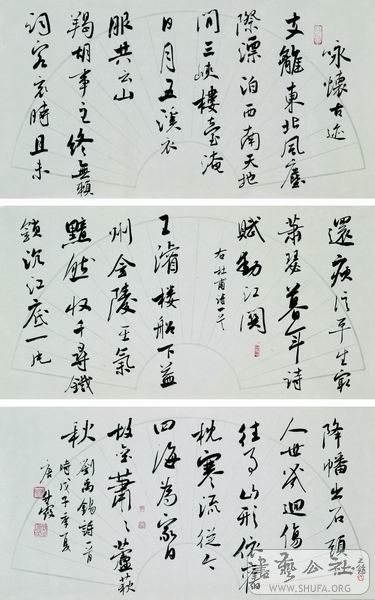 咏懷古迹
支離東北風塵
際漂泊西南天地
間三峽樓臺淹
日月五溪衣
服共云山
羯胡事主終無賴
詞客哀時且未
還庾信平生最
蕭瑟暮年詩
賦動江關
右杜甫詩一首
王濬楼船下益
州金陵王氣
黯然收千尋鐵
鎖沉江底一片
降幡出石頭
人世幾迴傷
往事山形依舊
枕寒流從今
四海為家日
故壘蕭々蘆荻
秋
劉禹錫詩一首
時戊子季夏
書藝公社
WWW.SHUFA.ORG